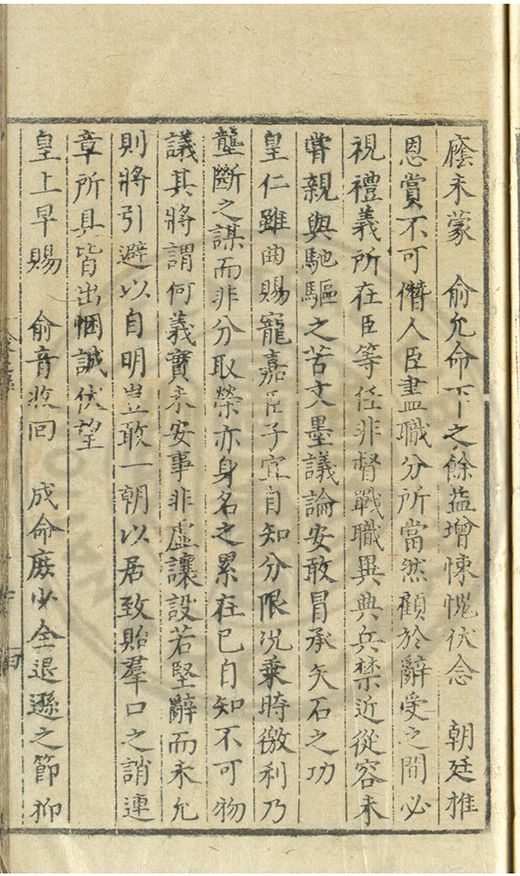 廕未蒙　俞允命下之餘益增悚愧伏念　朝廷推
恩賞不可僭人臣盡職分所當然顧於辭受之間必
視禮義所在臣等任非督戰職異典兵禁近從容未
甞親與馳驅之苦文墨議論安敢冒承矢石之功
皇仁雖曲賜寵嘉臣子宜自知分限况乗時徼利乃
壟斷之謀而非分取榮亦身名之累在已自知不可物
議其將謂何義實未安事非虛讓設若堅辭而未允
則將引避以自明豈敢一朝以居致貽羣口之誚連
章所具皆出悃誠伏望
皇上早賜　俞音收回　成命庶少全退遜之節抑